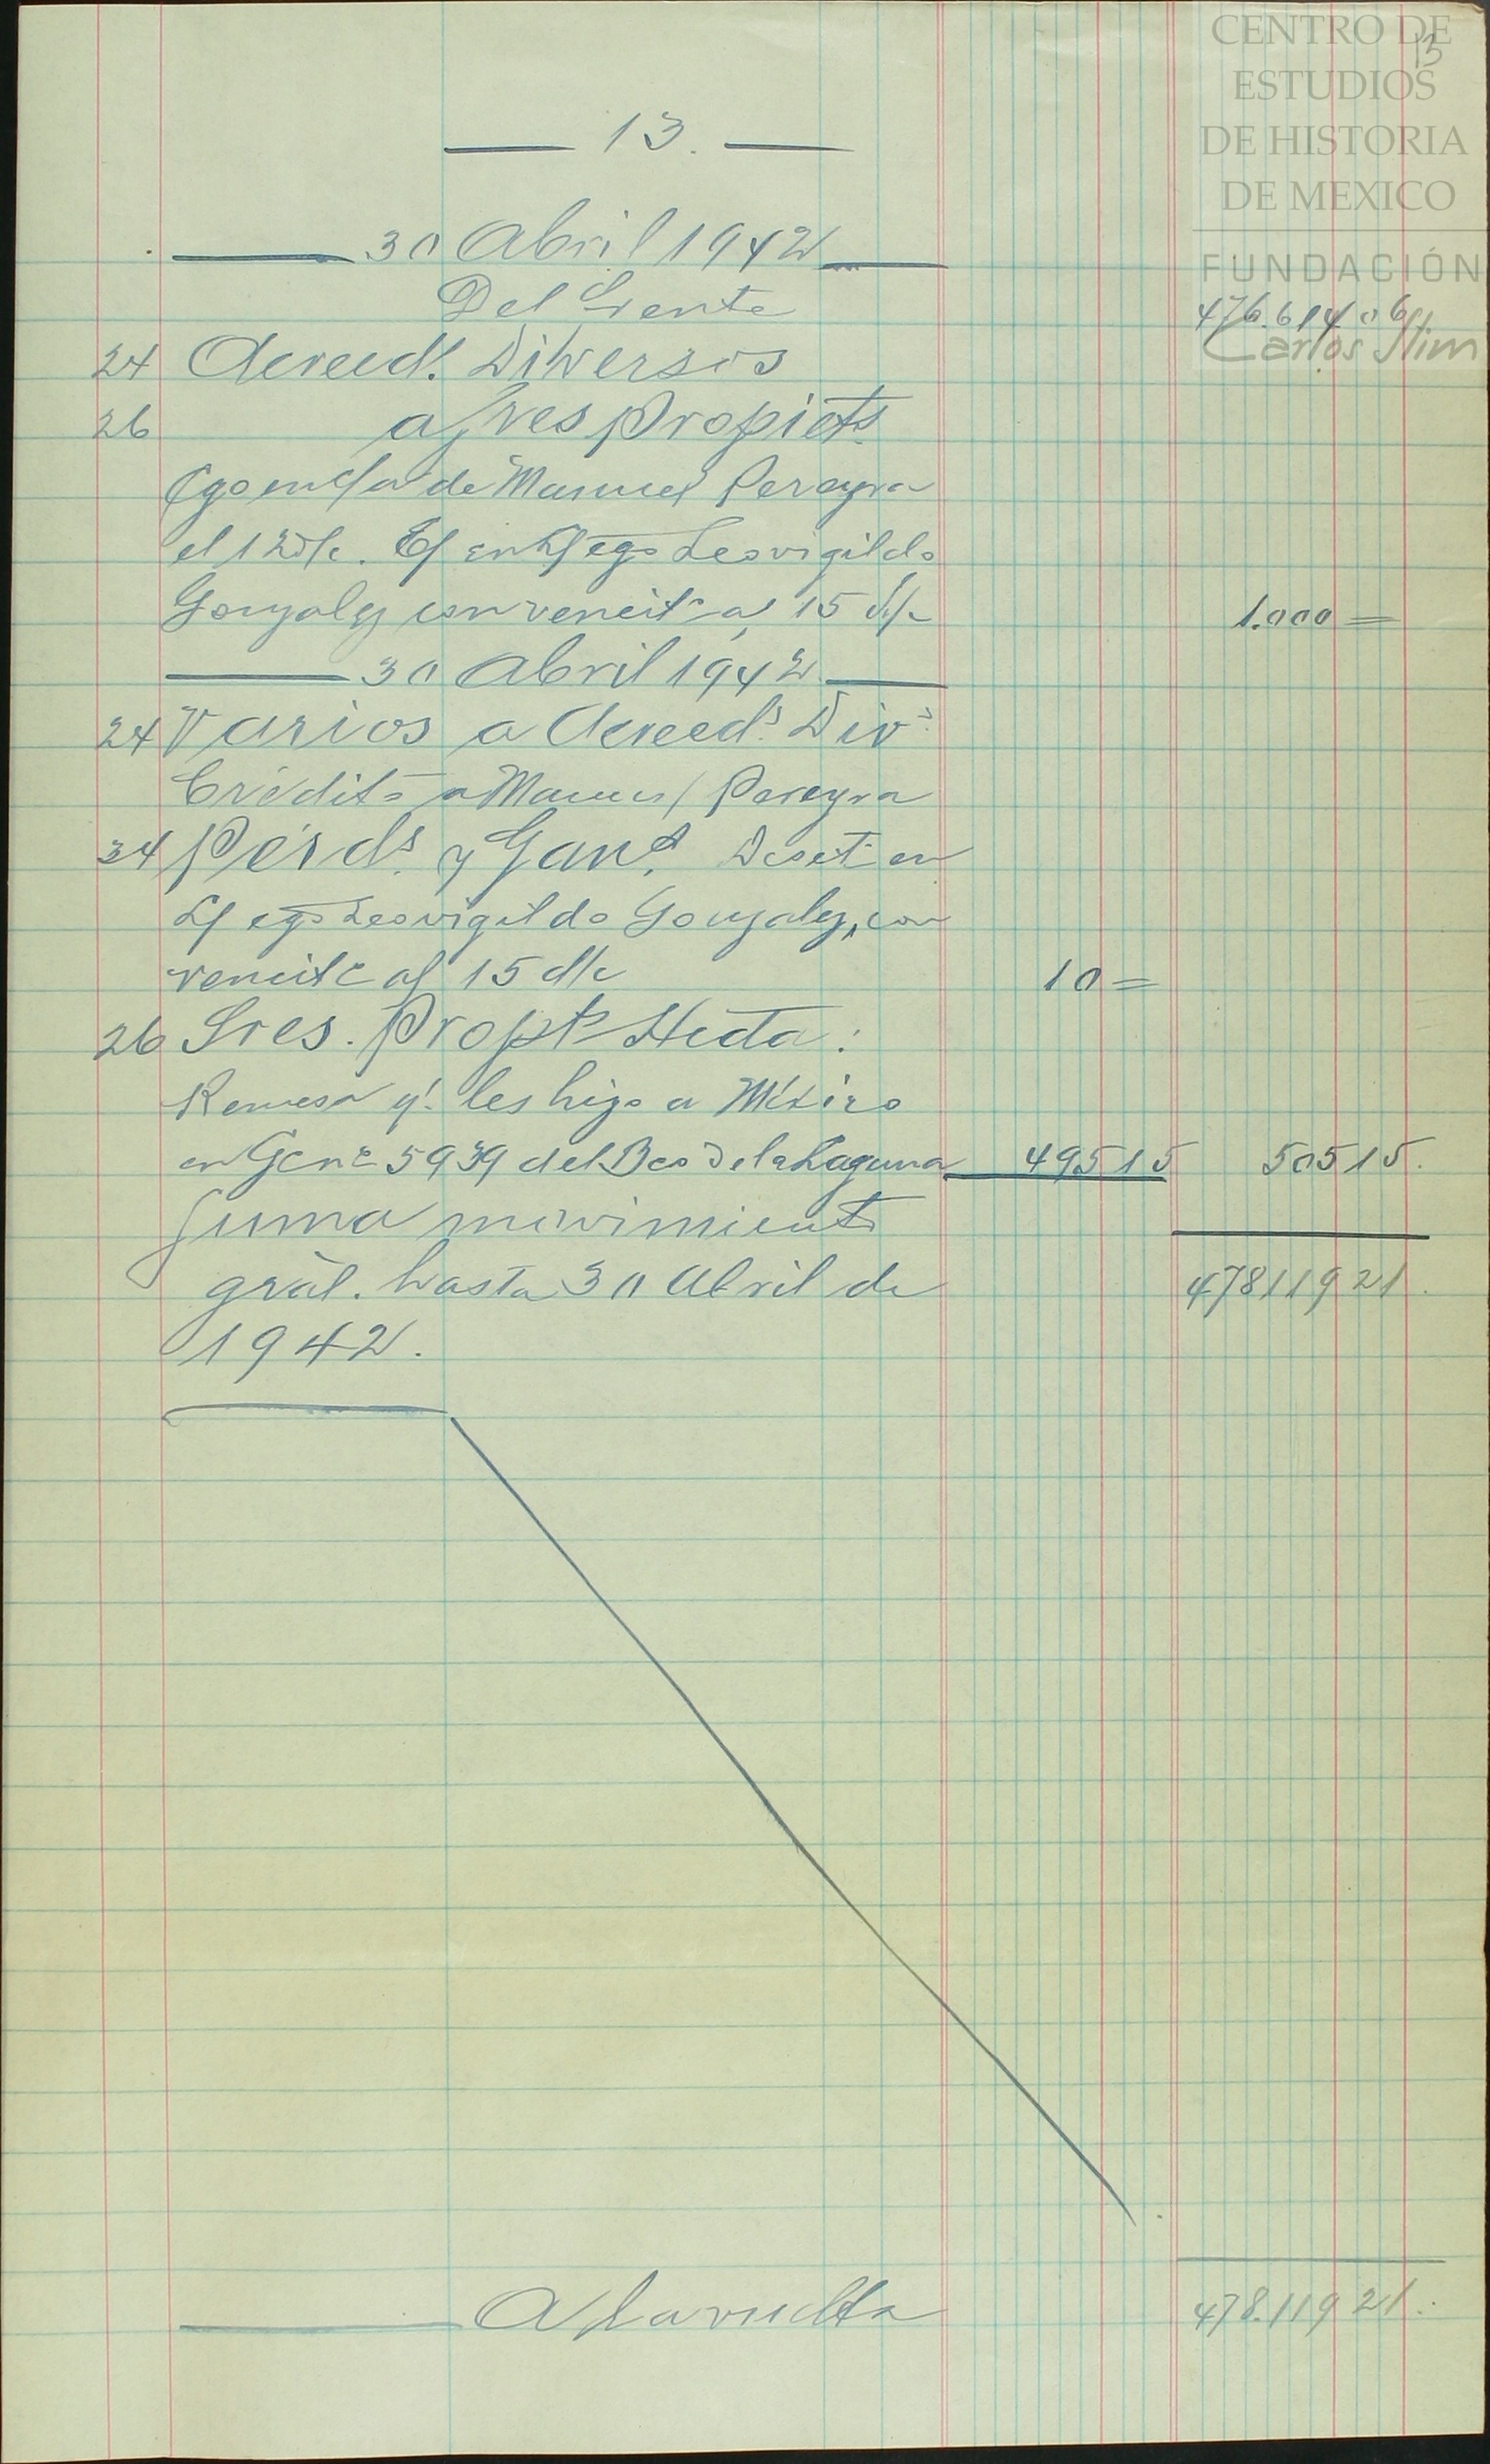 CENTRO DE
ESTUDIOS
DE HISTORIA
DE MEXICO
FUNDACIÓN
Carlos Slim
13
— 13. —
30 Abril 1942
Del frente 476.614 06
24 Acreeds. Diversos
26 a Sres Propiets.
Cgo en c/a de Manuel Pereyra
el 12 d/c. en L/ cgo Leovigildo
Gonzalez con vencito al 15 d/c 1.000 =
30 Abril 1942
24 Varios a Acreeds. Divs.
Crédito a Manuel Pereyra
34 Pérds. y Gans. Dscto en
L/ cgo Leovigildo Gonzalez, con
vencito al 15 d/c 10 =
26 Sres. Propts Hcda:
Remesa q. les hizo a México
en Gcno 5939 del Bco de la Laguna 495 15 505 15.
Suma movimiento
gràl. hasta 30 Abril de 478119 21.
1942.
A la vuelta 478.119 21.